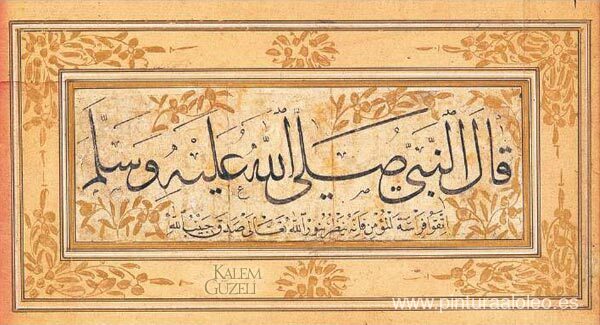 قَالَ النَّبِيُّ صَلَّى اللّٰهُ عَلَيْهِ وَسَلَّمَ
اتقوا فراسة المؤمن فإنه ينظر بنور الله تعالى صدق حبيب الله
KALEM
GÜZELİ
www.pinturaaloleo.es